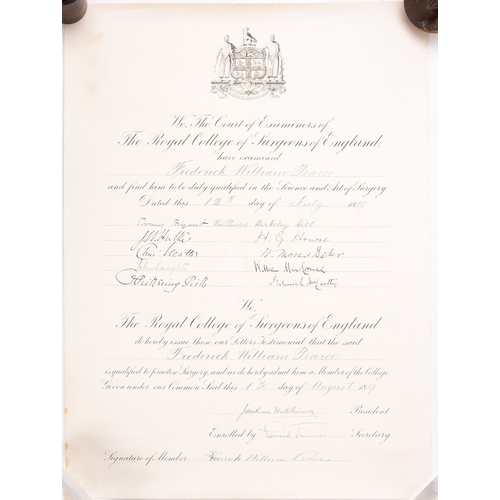 We, The Court of Examiners of
The Royal College of Surgeons of England,
have examined
Frederick William Pearce
and find him to be duly qualified in the Science and Art of Surgery.
Dated this 12th day of July
Thomas Bryant Berkeley Hill
H. G. Howse
Pickering Pick William Mac Cormac
We,
The Royal College of Surgeons of England
do hereby issue these our Letters Testimonial, that the said
Frederick William Pearce
is qualified to practise Surgery, and we do hereby admit him a Member of the College.
Given under our Common Seal this day of August
Jonathan Hutchinson President
Enrolled by Secretary
Signature of Member Frederick William Pearce